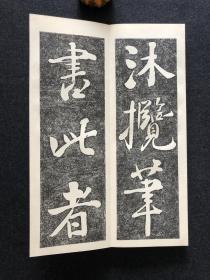 沐攬筆
書此者